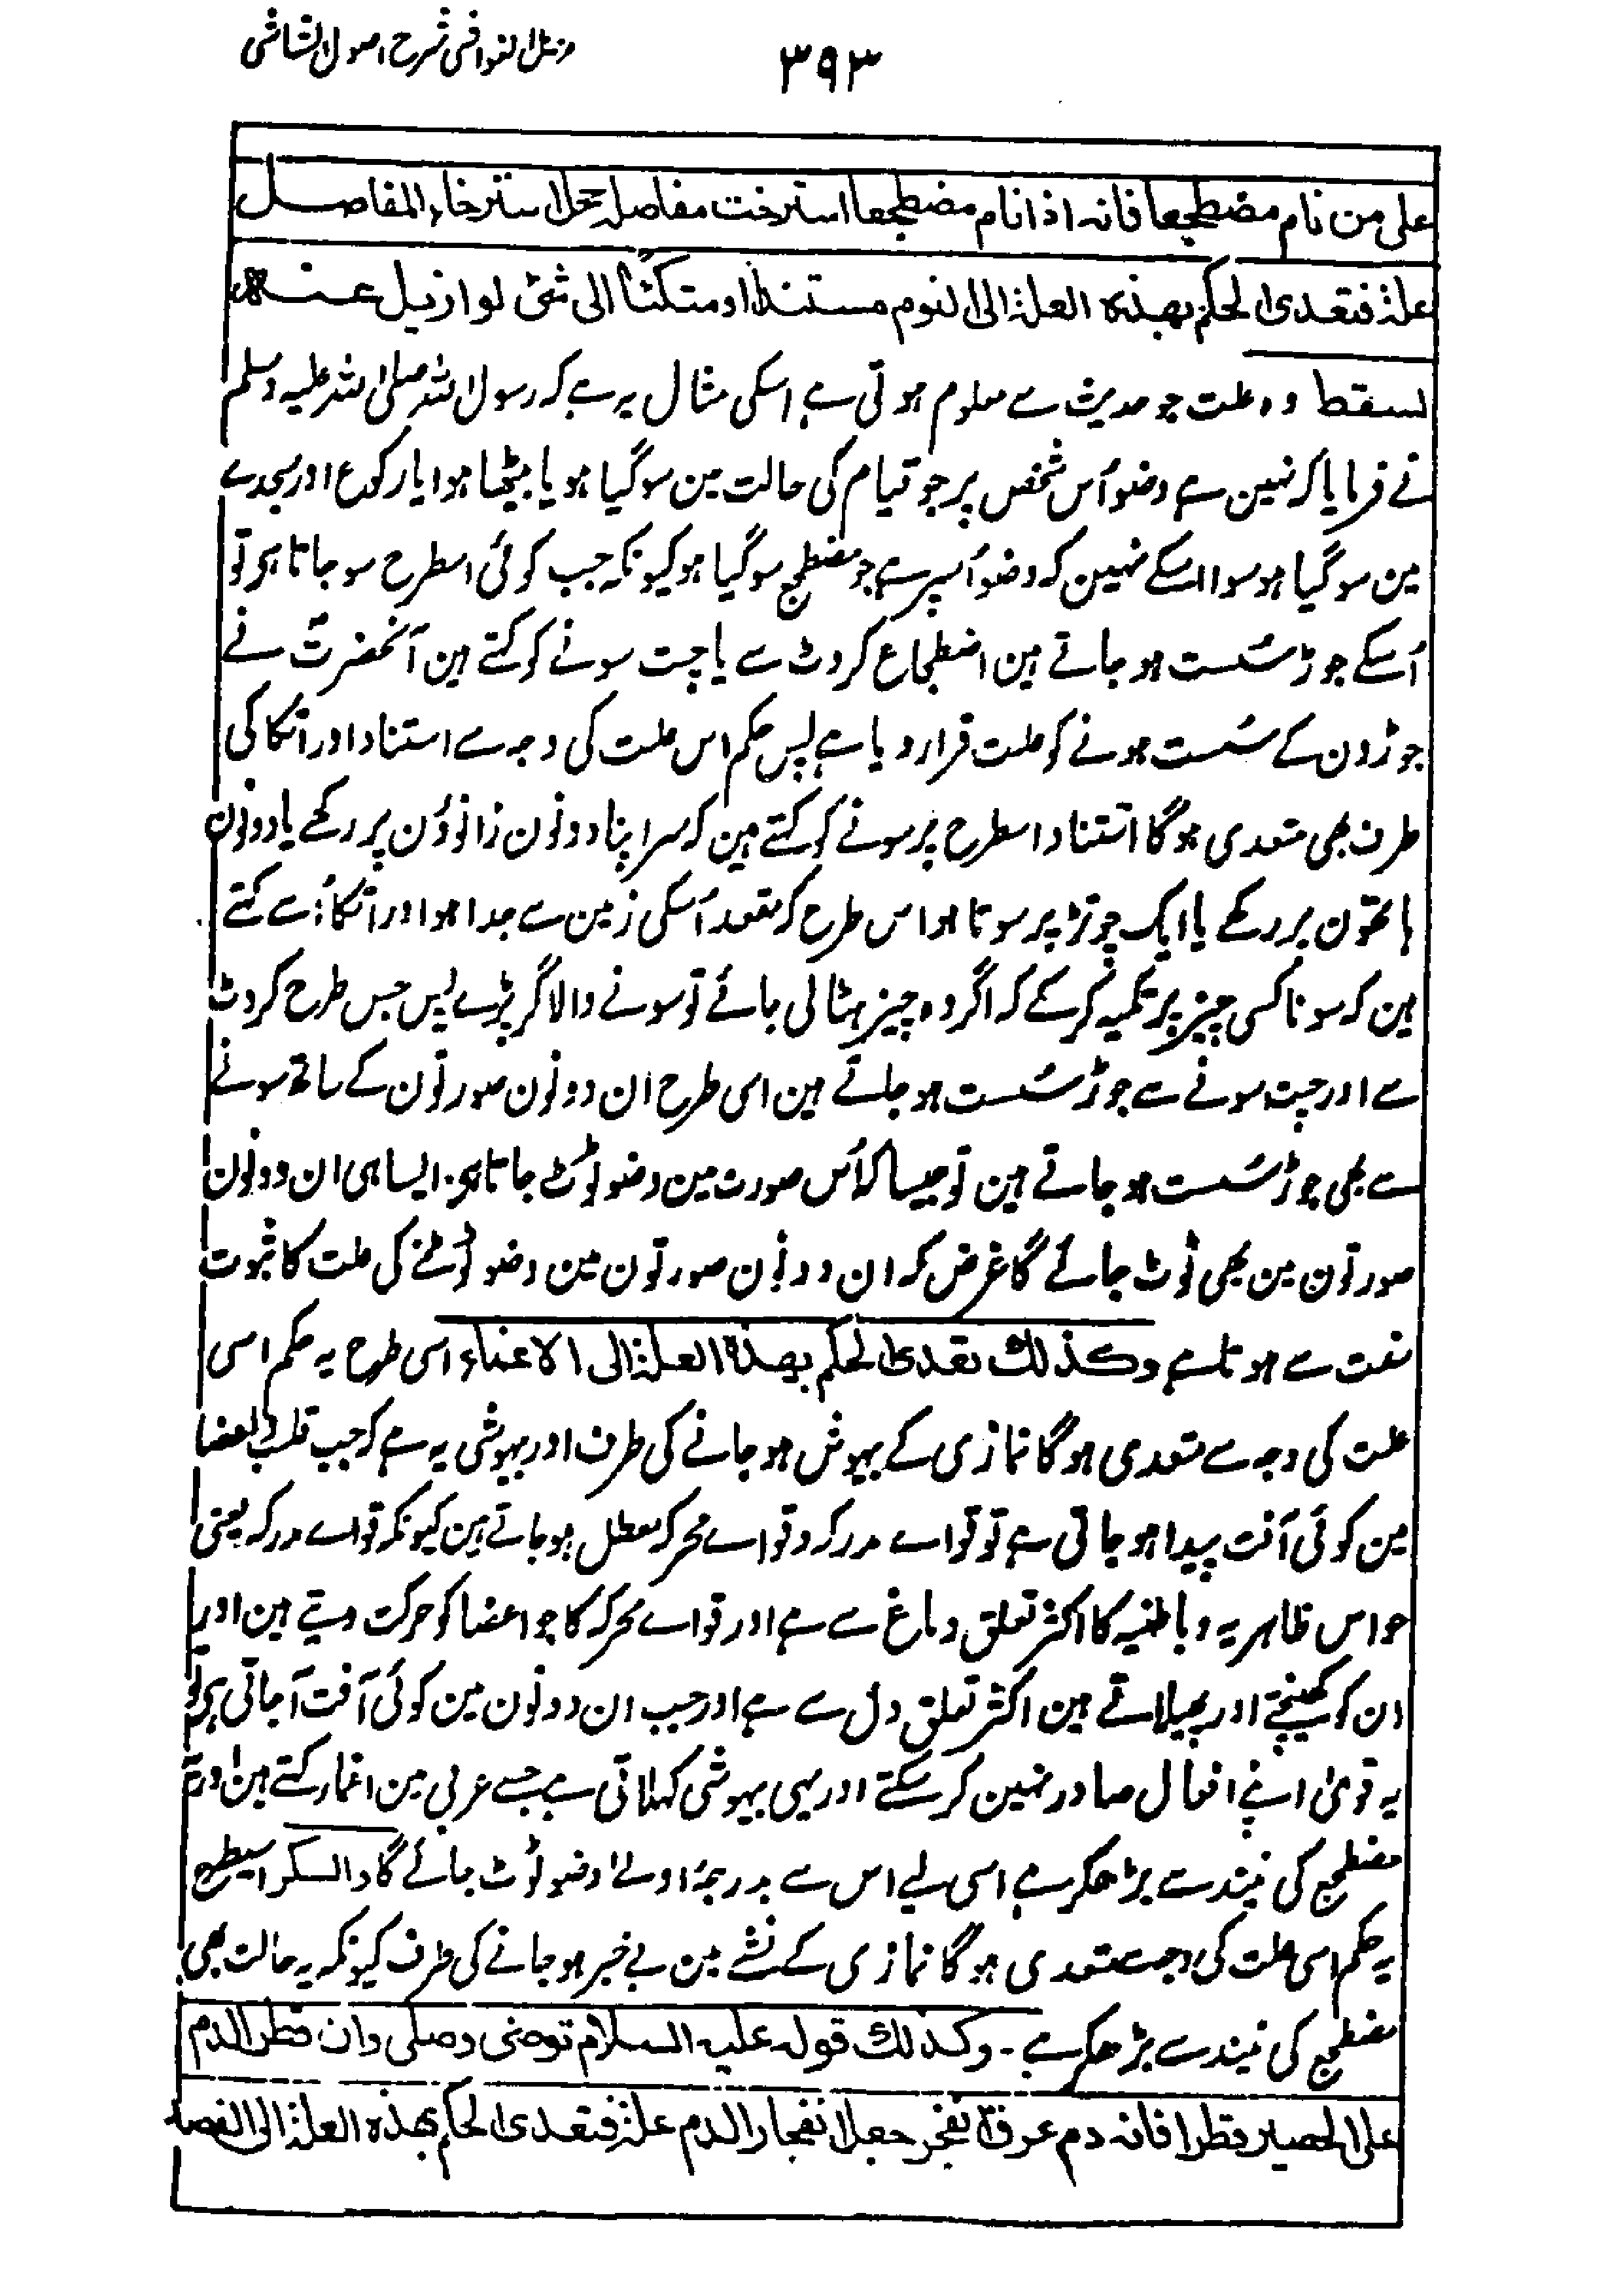 مزیل الغواشی شرح اصول الشاشی
۳۹۳
علی من نام مضطجعا فانہ اذا نام مضطجعا استرخت مفاصلہ جعل استرخاء المفاصل
علۃ فتعدی الحکم بھذہ العلۃ الی النوم مستندا او متکئا الی شئ لو ازیل عنہ
لسقط وہ علت جو حدیث سے معلوم ہوتی ہے اسکی مثال یہ ہے کہ رسول اللہ صلی اللہ علیہ وسلم
نے فرمایا کہ نہین ہے وضو اُس شخص پر جو قیام کی حالت مین سو گیا ہو یا بیٹھا ہوا یا رکوع اور سجدے
مین سو گیا ہو سوا اسکے نہین کہ وضو اُسپر ہے جو مضطجع سو گیا ہو کیونکہ جب کوئی اسطرح سو جاتا ہو تو
اُسکے جوڑ سُست ہو جاتے ہین اضطجاع کروٹ سے یا چت سونے کو کہتے ہین آنحضرتؐ نے
جوڑون کے سُست ہونے کو علت قرار دیا ہے پس حکم اس علت کی وجہ سے استناد اور اتکا کی
طرف بھی متعدی ہوگا استناد اسطرح پر سونے کو کہتے ہین کہ سر اپنا دونون زانوؤن پر رکھے یا دونون
ہاتھون پر رکھے یا ایک چوتڑ پر سوتا ہو اس طرح کہ مقعد اُسکی زمین سے جدا ہو اور اتکا اُسے کہتے
ہین کہ سونا کسی چیز پر تکیہ کرکے کہ اگر وہ چیز ہٹالی جائے تو سونے والا گر پڑے پس جس طرح کروٹ
سے اور چت سونے سے جوڑ سُست ہو جاتے ہین اسی طرح ان دونون صورتون کے ساتھ سونے
سے بھی جوڑ سُست ہو جاتے ہین تو جیسا کہ اُس صورت مین وضو ٹوٹ جاتا ہو ایسا ہی ان دونون
صورتون مین بھی ٹوٹ جائے گا غرض کہ ان دونون صورتون مین وضو ٹوٹنے کی علت کا ثبوت
سنت سے ہوتا ہے وکذلک تعدی الحکم بھذہ العلۃ الی الاغماء اسی طرح یہ حکم اسی
علت کی وجہ سے متعدی ہوگا نمازی کے بیہوش ہو جانے کی طرف اور بیہوشی یہ ہے کہ جب قلب و اعضا
مین کوئی آفت پیدا ہو جاتی ہے تو قواے مدرکہ و قواے محرکہ معطل ہو جاتے ہین کیونکہ قواے مدرکہ یعنی
حواس ظاہریہ و باطنیہ کا اکثر تعلق دماغ سے ہے اور قواے محرکہ کا جو اعضا کو حرکت دیتے ہین اور
ان کو کھینچتے اور پھیلاتے ہین اکثر تعلق دل سے ہے اور جب ان دونون مین کوئی آفت آجاتی ہے تو
یہ قویٰ اپنے افعال صادر نہین کر سکتے اور یہی بیہوشی کہلاتی ہے جسے عربی مین اغما کہتے ہین اور یہ
مضطجع کی نیند سے بڑھکر ہے اسی لیے اس سے بدرجۂ اولے وضو ٹوٹ جائے گا والسکر اسیطرح
یہ حکم اسی علت کی وجہ سے متعدی ہوگا نمازی کے نشے مین بے خبر ہو جانے کی طرف کیونکہ یہ حالت بھی
مضطجع کی نیند سے بڑھکر ہے ۔ وکذلک قولہ علیہ السلام توضئی وصلی وان قطر الدم
علی الحصیر قطرا فانہ دم عرق انفجر جعل انفجار الدم علۃ فتعدی الحکم بھذہ العلۃ الی الفصد